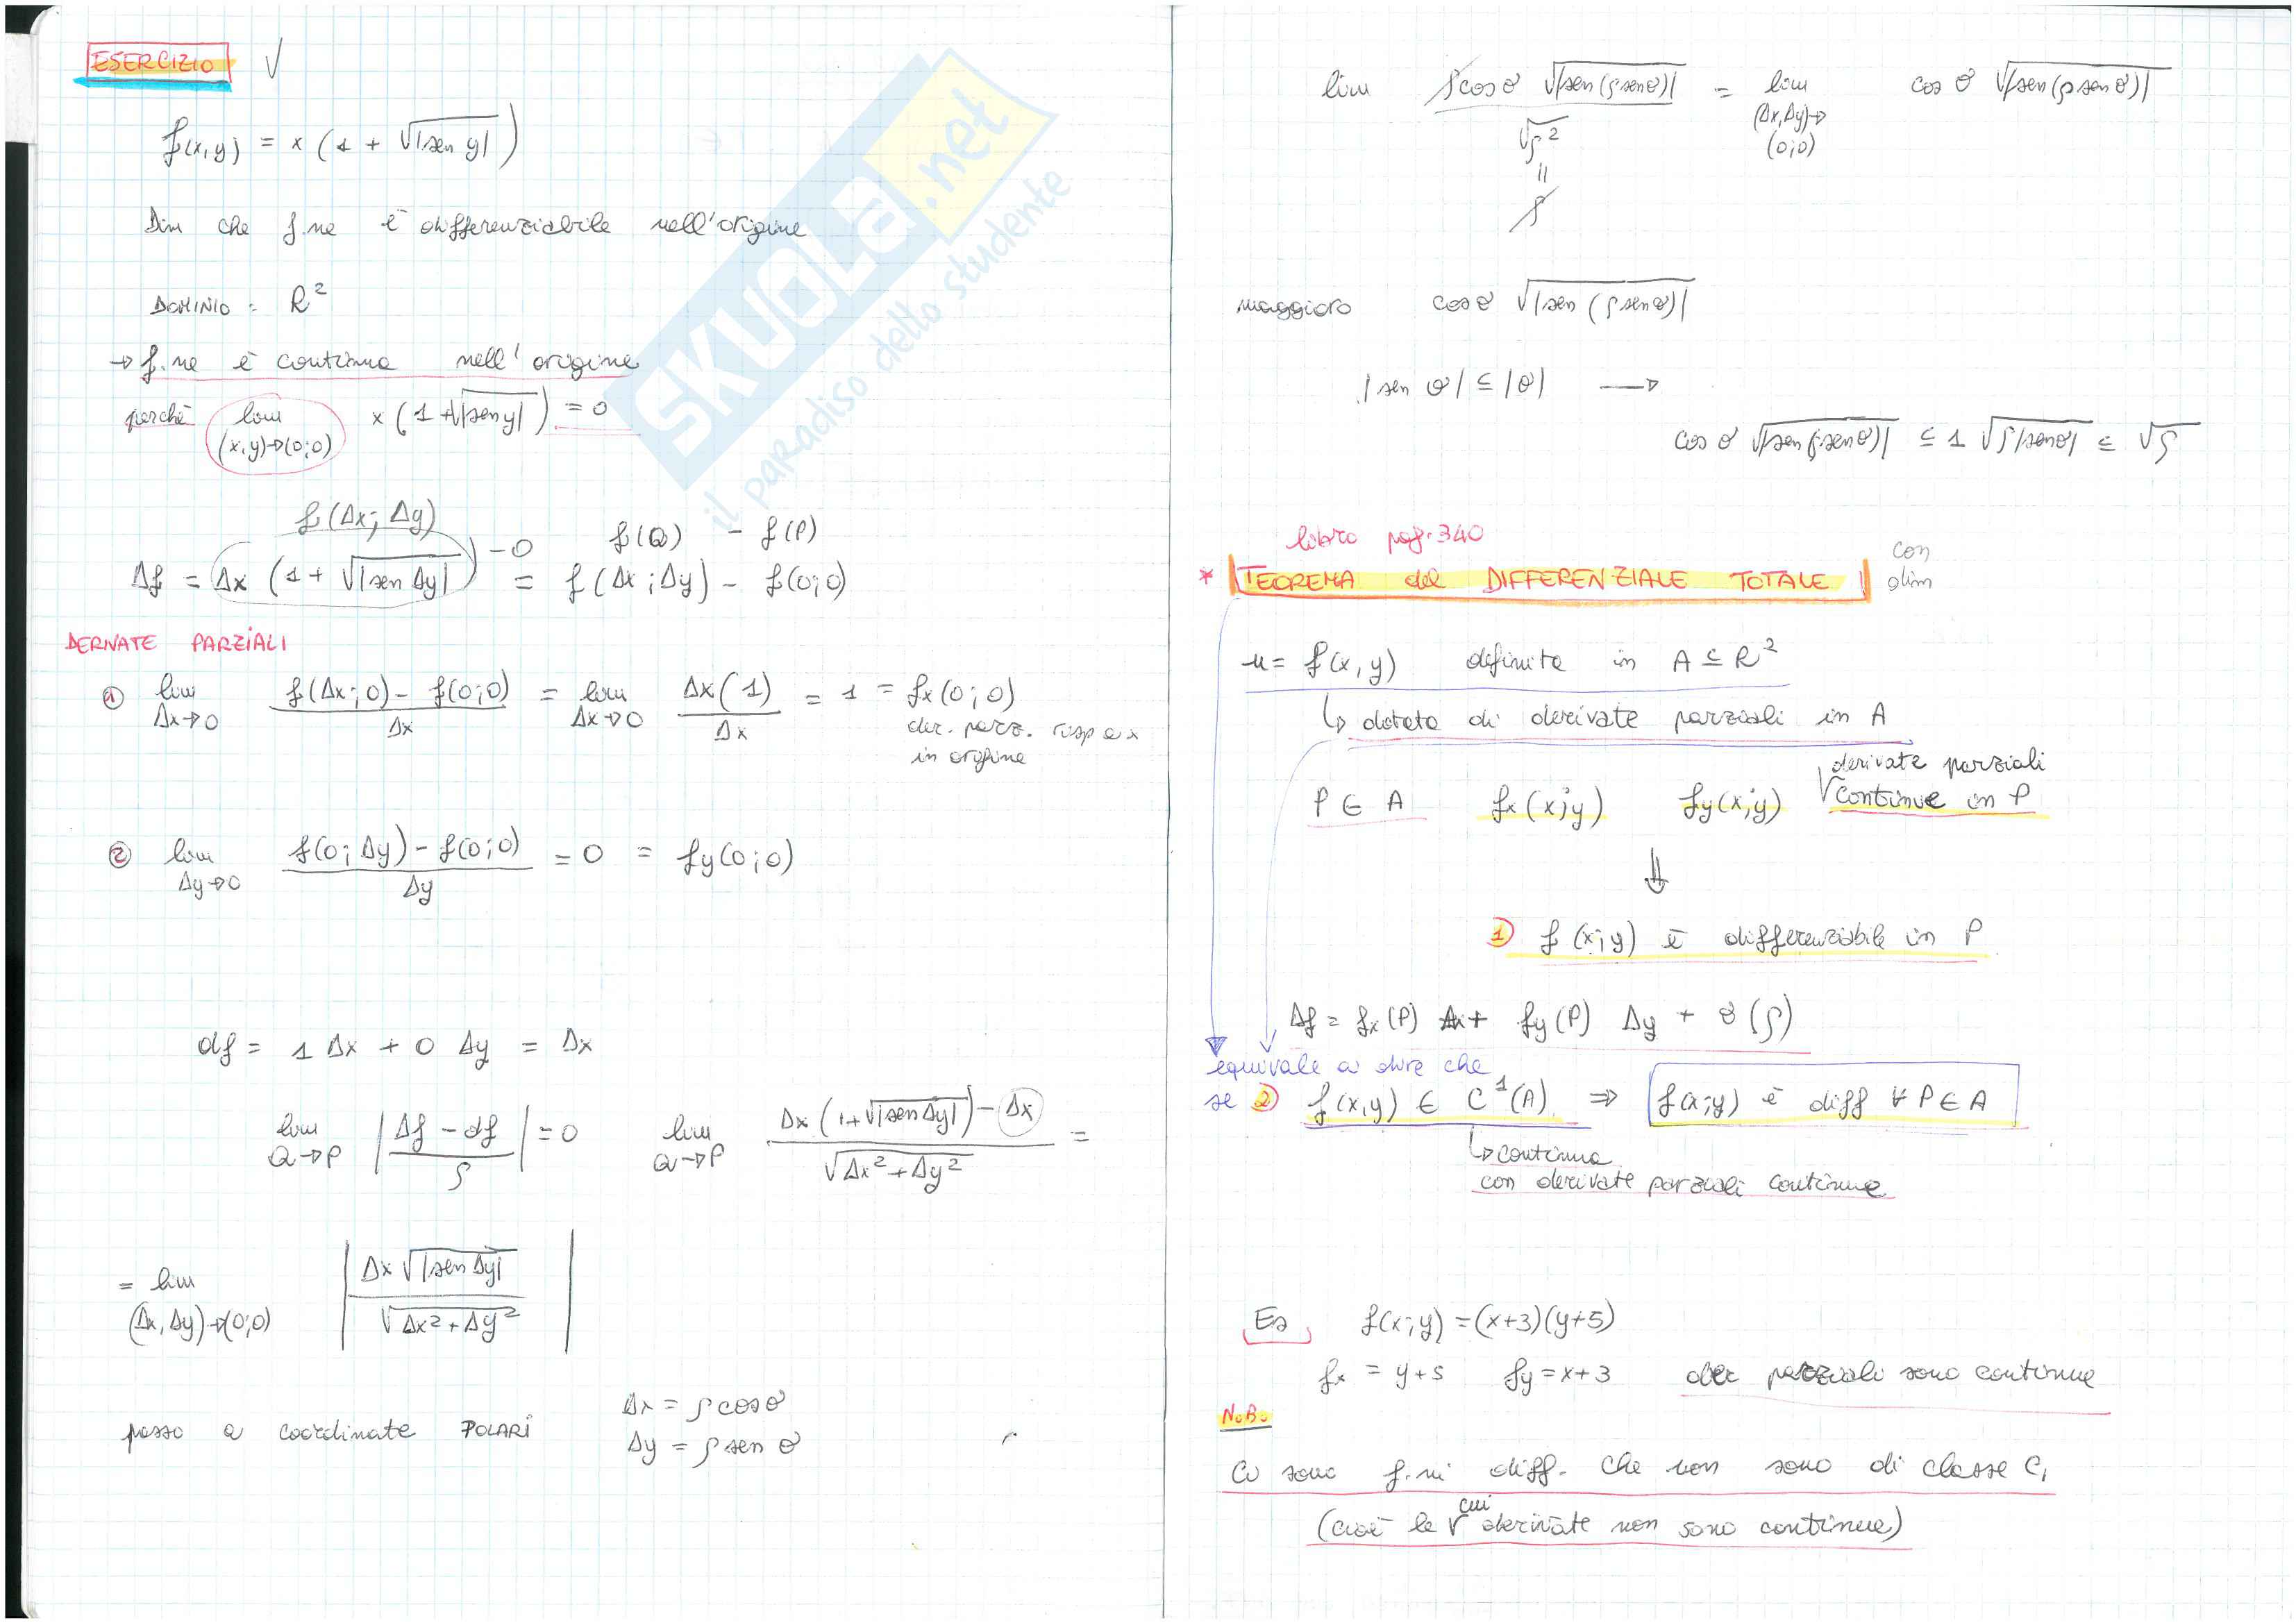 ESERCIZIO √
f(x,y) = x (1 + √|sen y|)
Dim che f.ne è differenziabile nell'origine
DOMINIO = R²
→ f.ne è continua nell'origine
perchè lim x (1+√|sen y|) = 0
(x,y)→(0;0)
f(Δx; Δy)
Δf = Δx (1 + √|sen Δy|) - 0 = f(Δx;Δy) - f(0;0)
f(Q) - f(P)
DERIVATE PARZIALI
① lim Δx→0 f(Δx;0) - f(0;0) / Δx = lim Δx→0 Δx(1) / Δx = 1 = fx(0;0)
der. parz. risp a x
in origine
② lim Δy→0 f(0;Δy) - f(0;0) / Δy = 0 = fy(0;0)
df = 1 Δx + 0 Δy = Δx
lim Q→P |Δf - df / ρ| = 0 lim Q→P Δx (1+√|sen Δy|) - Δx / √Δx²+Δy² =
= lim (Δx,Δy)→(0;0) |Δx √|sen Δy| / √Δx²+Δy²|
passo a coordinate POLARI
Δx = ρ cos θ
Δy = ρ sen θ
lim ρ cos θ √|sen(ρ sen θ)| / √ρ² = lim (Δx,Δy)→(0;0) cos θ √|sen(ρ sen θ)|
||
ρ
maggioro cos θ √|sen(ρ sen θ)|
|sen θ| ≤ |θ| →
cos θ √|sen(ρ sen θ)| ≤ 1 √ρ|sen θ| ≤ √ρ
libro pag. 340
* TEOREMA del DIFFERENZIALE TOTALE con dim
u = f(x,y) definita in A ⊆ R²
↳ dotata di derivate parziali in A
P ∈ A fx(x;y) fy(x;y) derivate parziali continue in P
⇓
1) f(x;y) è differenziabile in P
Δf = fx(P) Δx + fy(P) Δy + o(ρ)
equivale a dire che
se 2) f(x,y) ∈ C¹(A) ⇒ f(x;y) è diff ∀ P ∈ A
↳ continua
con derivate parziali continue
Es f(x;y) = (x+3)(y+5)
fx = y+5 fy = x+3 der parziali sono continue
N.B.
Ci sono f.ni diff. che non sono di classe C₁
(cioè le cui derivate non sono continue)
SKUOLA.net
il paradiso dello studente